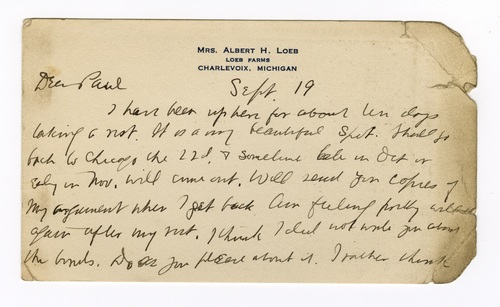 Mrs. Albert H. Loeb
Loeb Farms
Charlevoix, Michigan
Dear Paul
Sept. 19
I have been up here for about ten days
taking a rest. It is a very beautiful spot. Shall go
back to Chicago the 22d, & sometime late in Oct or
early in Nov. will come out. Will send you copies of
my argument when I get back. Am feeling pretty well
again after my rest. I think I did not write you about
the bonds. Do as you please about it. I rather think